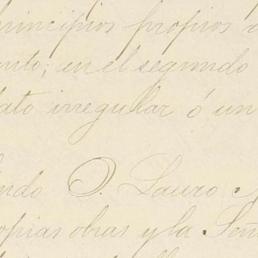 principios propios
ento; en el segundo
dato irregular ó un
endo D. Lauro
opias obras y la Señ